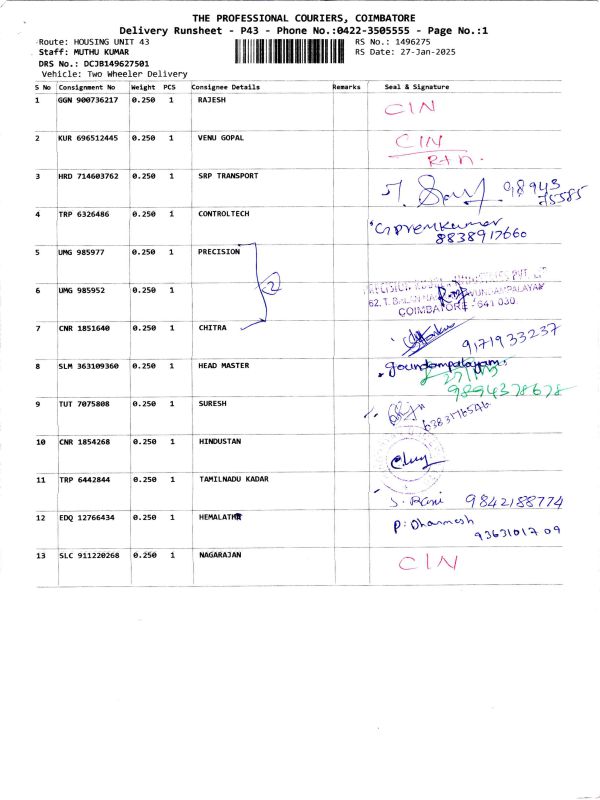 THE PROFESSIONAL COURIERS, COIMBATORE
Delivery Runsheet - P43 - Phone No.:0422-3505555 - Page No.:1
Route: HOUSING UNIT 43 RS No.: 1496275
Staff: MUTHU KUMAR RS Date: 27-Jan-2025
DRS No.: DCJB149627501
Vehicle: Two Wheeler Delivery
S No Consignment No Weight PCS Consignee Details Remarks Seal & Signature
1 GGN 900736217 0.250 1 RAJESH CIN
2 KUR 696512445 0.250 1 VENU GOPAL CIN
Rtn.
3 HRD 714603762 0.250 1 SRP TRANSPORT 98943
75585
4 TRP 6326486 0.250 1 CONTROLTECH C)Premkumar
8838917660
5 UMG 985977 0.250 1 PRECISION 2
6 UMG 985952 0.250 1
62, T. GOUNDAMPALAYAM
COIMBATORE - 641 030
7 CNR 1851640 0.250 1 CHITRA 9171933237
8 SLM 363109360 0.250 1 HEAD MASTER goundampalayam
9894378678
9 TUT 7075808 0.250 1 SURESH 6383176546
10 CNR 1854268 0.250 1 HINDUSTAN
11 TRP 6442844 0.250 1 TAMILNADU KADAR S. Rani 9842188774
12 EDQ 12766434 0.250 1 HEMALATHA P. Dharmesh
9363101709
13 SLC 911220268 0.250 1 NAGARAJAN CIN